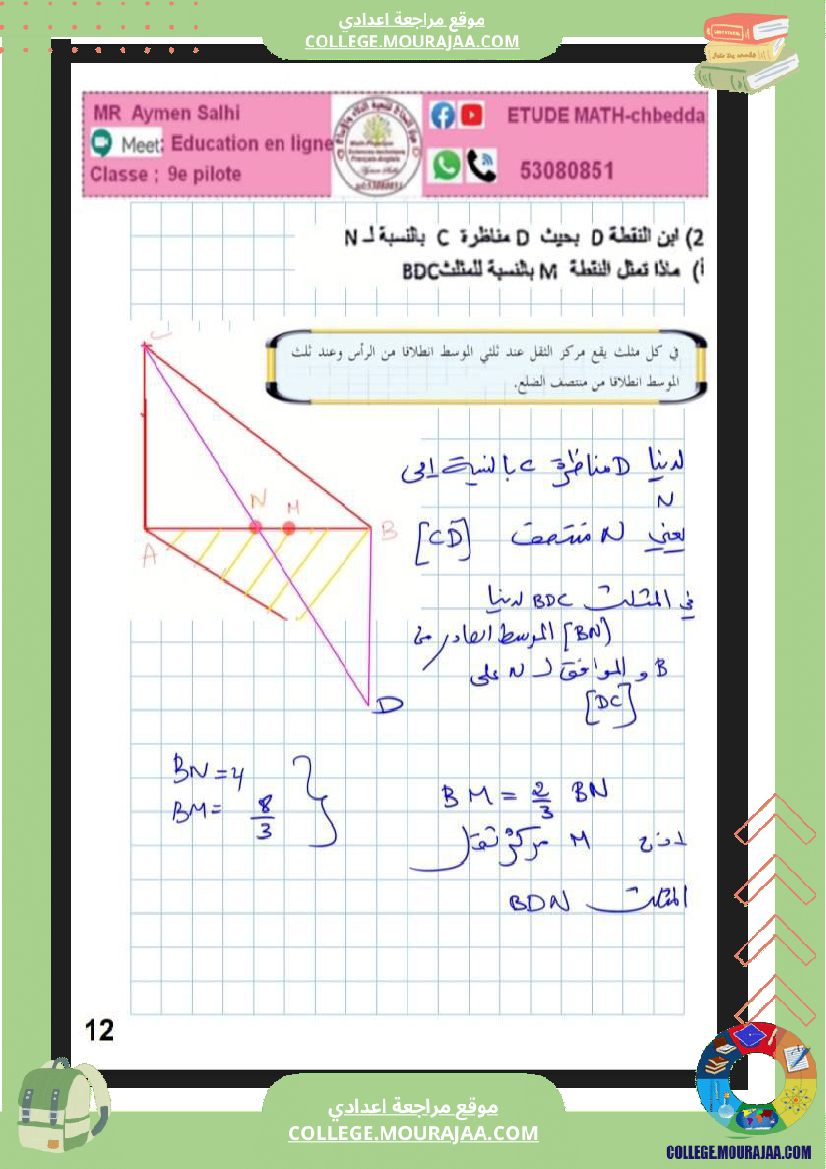 موقع مراجعة اعدادي
COLLEGE.MOURAJAA.COM
MR Aymen Salhi
Meet: Education en ligne
Classe : 9e pilote
ETUDE MATH-chbedda
53080851
2) ابن النقطة D بحيث D مناظرة C بالنسبة لـ N
أ) ماذا تمثل النقطة M بالنسبة للمثلث BDC
في كل مثلث يقع مركز الثقل عند ثلثي الموسط انطلاقا من الرأس وعند ثلث
الموسط انطلاقا من منتصف الضلع.
C
N
M
A
B
D
لدينا D مناظرة C بالنسبة إلى
N
يعني N منتصف [CD]
في المثلث BDC لدينا
[BN) الموسط الصادر من
B و الموافق لـ N على
[DC]
BN = 4
BM = 8/3
BM = 2/3 BN
اذن M مركز ثقل
المثلث BDN
12
موقع مراجعة اعدادي
COLLEGE.MOURAJAA.COM
COLLEGE.MOURAJAA.COM